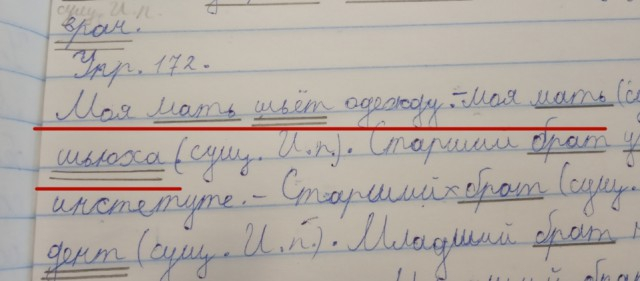 сущ. И.п.
врач.
Упр. 172.
Моя мать шьёт одежду. - Моя мать (с
шьюха (сущ. И.п.). Старший брат у
институте. - Старший брат (сущ.
дент (сущ. И.п.). Младший брат